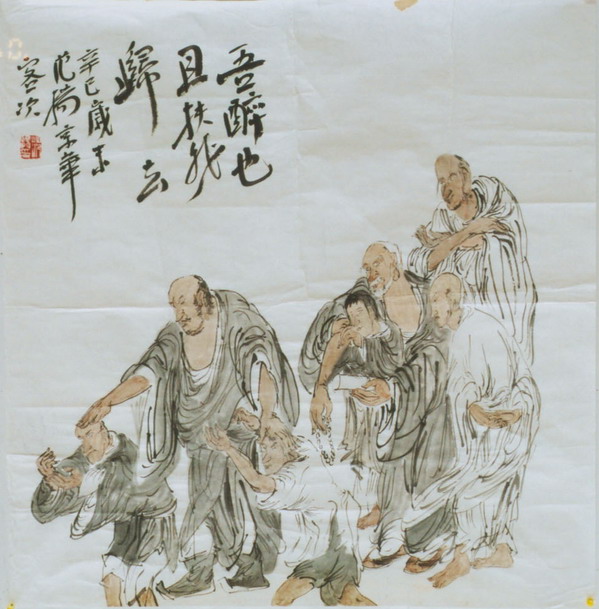 吾醉也
且扶我
歸去
辛巳歲末
范揚京華
客次